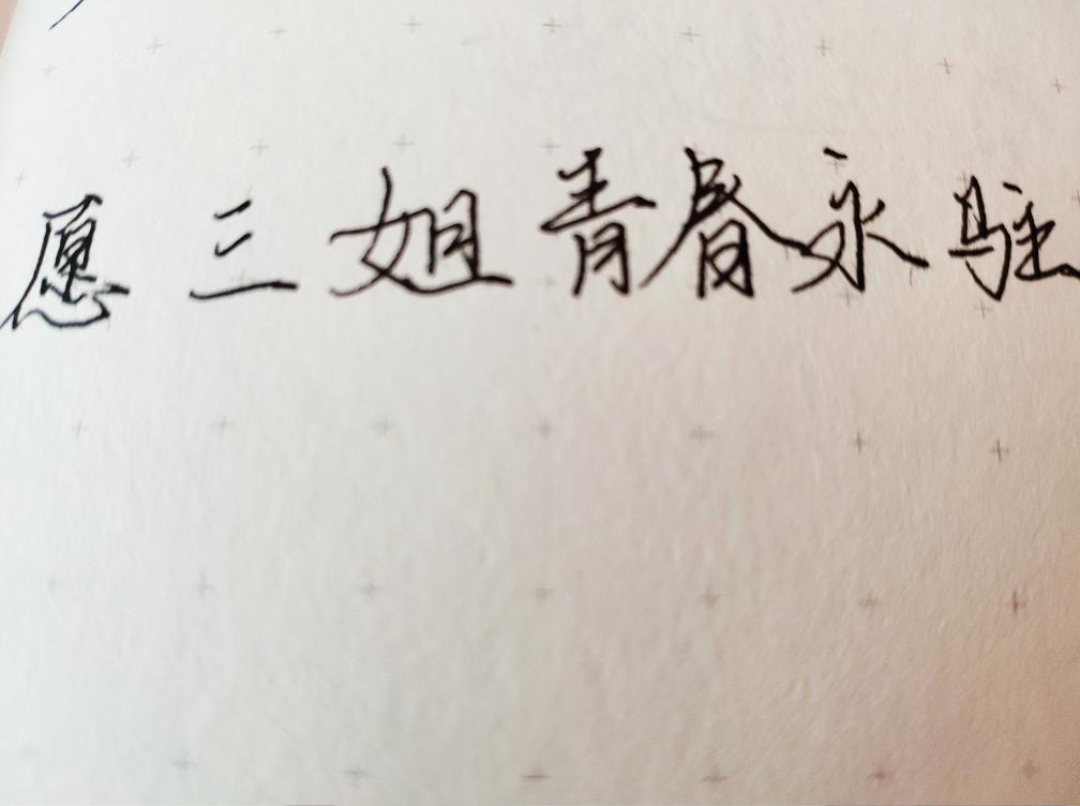 愿三姐青春永驻